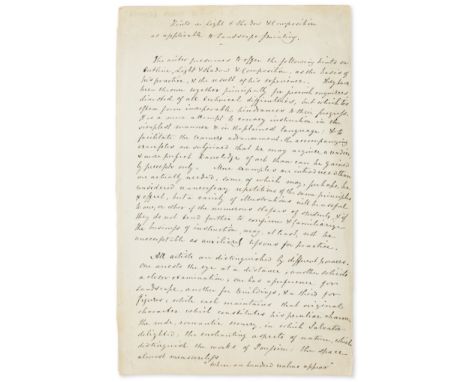 Hints on Light & Shadow & Composition
as applicable to Landscape Painting.
The writer presumes to offer the following hints on
Outline, Light & Shadow & Composition, as the basis of
his practice, & the result of his experience. They have
been thrown together principally for private enquirers
divested of all technical difficulties, but which too
often form insuperable hindrances to their progress.
It is a mere attempt to convey instruction in the
simplest manner & in the plainest language; & to
facilitate the learners advancement, the accompanying
examples are subjoined that he may acquire a readier
& more perfect knowledge of art than can be gained
by precepts only. More examples are introduced than
are actually needed, some of which may, perhaps, be
considered unnecessary repetitions of the same principles
& effect, but a variety of illustrations will be useful
to one, or other of the numerous classes of students, & if
they do not tend further to confirm & familiarize
the business of instruction, may, at least, not be
unacceptable as auxiliary lessons for practice.
All artists are distinguished by different powers,
one arrests the eye at a distance; another solicits
a closer examination; one has a preference for
landscape, another for buildings, & a third for
figures, while each maintains that original
character which constitutes his peculiar charm;
the rude, romantic scenery, in which Salvator
delighted; the enchanting aspects of nature, which
distinguish the works of Poussin; the space
almost measureless
"When an hundred realms appear"